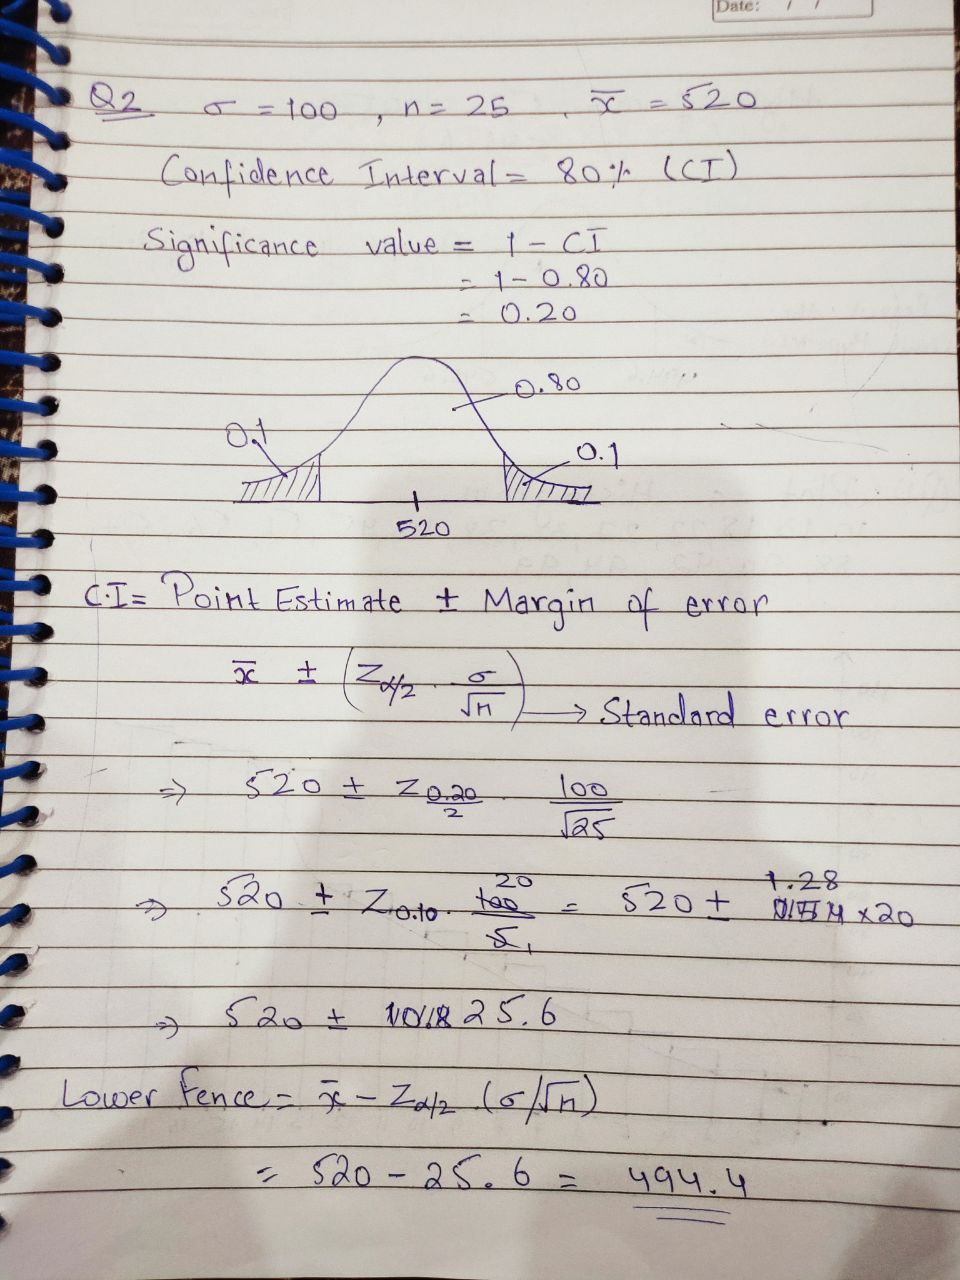 Date: / /
Q2 σ = 100 , n = 25 , x̄ = 520
Confidence Interval = 80% (CI)
Significance value = 1 - CI
= 1 - 0.80
= 0.20
0.80
0.1
0.1
520
C.I = Point Estimate ± Margin of error
x̄ ± (Z α/2 . σ/√n) → Standard error
⇒ 520 ± Z 0.20/2 . 100/√25
⇒ 520 ± Z 0.10 . 20 100/5 1 = 520 ± 1.28 × 20
⇒ 520 ± 25.6
Lower Fence = x̄ - Z α/2 (σ/√n)
= 520 - 25.6 = 494.4